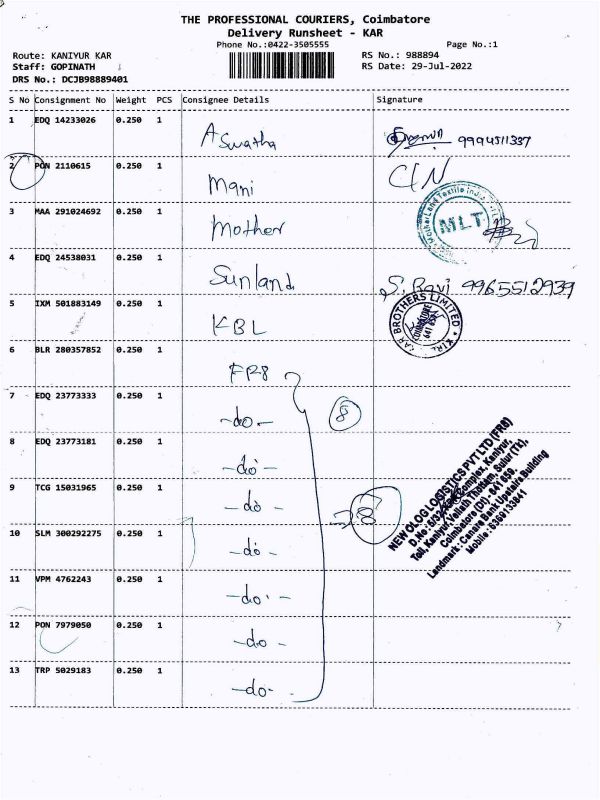 THE PROFESSIONAL COURIERS, Coimbatore
Delivery Runsheet - KAR
Phone No.:0422-3505555
Page No.:1
Route: KANIYUR KAR
RS No.: 988894
Staff: GOPINATH
RS Date: 29-Jul-2022
DRS No.: DCJB98889401
S No Consignment No Weight PCS Consignee Details Signature
1 EDQ 14233026 0.250 1 Aswatha 9994511337
2 PON 2110615 0.250 1 Mani
3 MAA 291024692 0.250 1 Mother
MotherLand Textile
MLT
4 EDQ 24538031 0.250 1 Sunland S. Ravi 9965512939
5 IXM 501883149 0.250 1 KBL
KAR BROTHERS LIMITED
COIMBATORE
641 659
6 BLR 280357852 0.250 1 FR8
7 EDQ 23773333 0.250 1 -do- 8
8 EDQ 23773181 0.250 1 -do-
9 TCG 15031965 0.250 1 -do- 8
NEWOLOG LOGISTICS PVT LTD (FR8)
Complex, Kaniyur,
Toll, Kaniyur, Thottam, Sulur (Tk),
Coimbatore (Dt) - 641 659.
Landmark : Canara Bank Upstairs Building
Mobile : 6369133841
10 SLM 300292275 0.250 1 -do-
11 VPM 4762243 0.250 1 -do-
12 PON 7979050 0.250 1 -do-
13 TRP 5029183 0.250 1 -do-